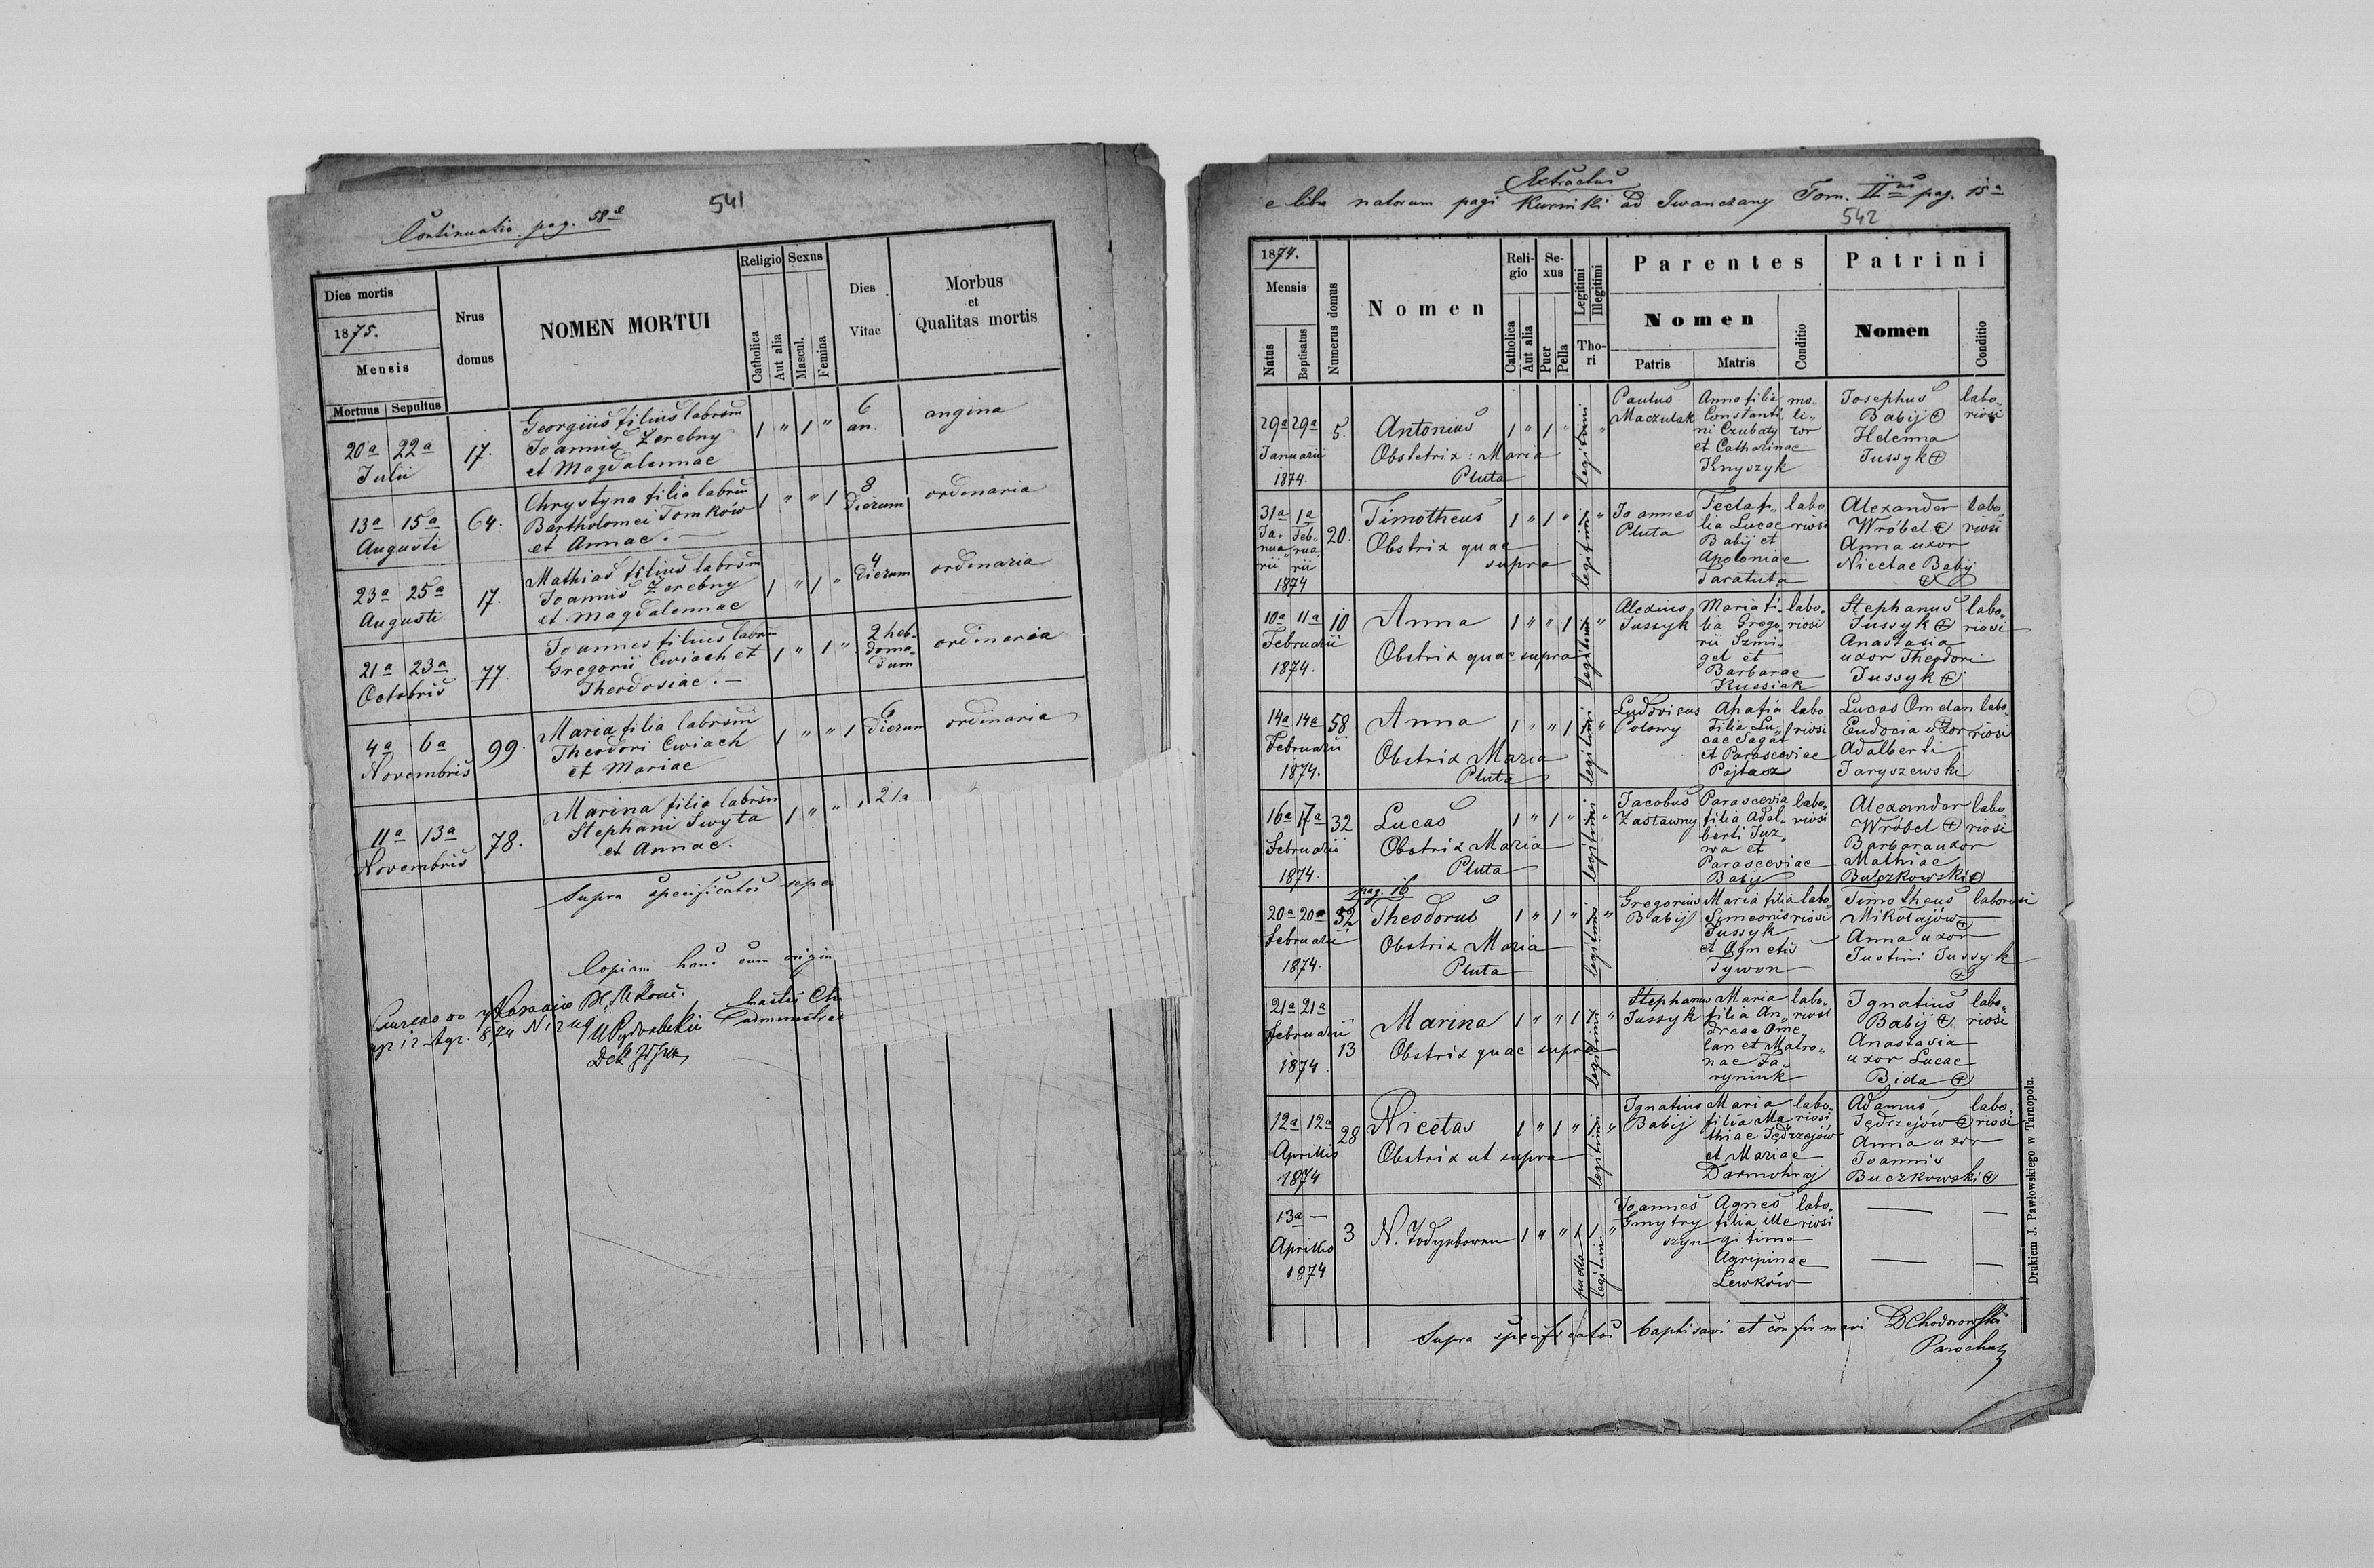 Continuatio pag. 58
541
Dies mortis
1875.
Mensis
Mortuus Sepultus
Nrus domus
NOMEN MORTUI
Religio Sexus
Catholica
Aut alia
Mascul.
Femina
Dies Vitae
Morbus
et
Qualitas mortis
20a 22a
Julii
17.
Georgius filius labrsm
Joannis Zerebny
et Magdalennae
1 " 1 "
6
an.
angina
13a 15a
Augusti
64.
Chrystyna filia labrsm
Bartholomei Tomków
et Annae. —
1 " " 1
8
Dierum
ordinaria
23a 25a
Augusti
17.
Mathias filius labrsm
Joannis Zerebny
et Magdalennae
1 " 1 "
4
Dierum
ordinaria
21a 23a
Octobris
77.
Joannes filius labrsm
Gregorii Cwiach et
Theodosiae. —
1 " 1 "
2 heb-
doma-
dum
ordinaria
4a 6a
Novembris
99.
Maria filia labrsm
Theodori Cwiach
et Mariae
1 " " 1
6
Dierum
ordinaria
11a 13a
Novembris
78.
Marina filia labrsm
Stephani Swyta
et Annae.
1 " "
21a
Supra specificatos sepe
Copiam hanc cum origin
Extractus
e libro natorum pagi Kurniki ad Iwanczany Tom. II pag. 15a
542
1874.
Mensis
Natus
Baptisatus
Numerus domus
Nomen
Reli-
gio
Catholica
Aut alia
Se-
xus
Puer
Pella
Legitimi
Illegitimi
Tho-
ri
Parentes
Nomen
Patris
Matris
Conditio
Patrini
Nomen
Conditio
29a 29a
Januarii
1874.
5.
Antonius
Obstetrix: Maria
Pluta
1 " 1 "
legitimi
Paulus
Maczulak
Anna filia
Constanti-
ni Czubaty
et Catharinae
Knyszyk
mo-
li-
tor
Josephus
Babij
Helenna
Jussyk
labo-
riosi
31a 1a
Ja- Feb-
nua- rua-
rii rii
1874
20.
Timotheus
Obstrix quae
supra
1 " 1 "
legitimi
Joannes
Pluta
Tecla fi-
lia Lucae
Babij et
Apoloniae
Taratuta
labo-
riosi
Alexander
Wróbel
Anna uxor
Nicetae Babij
labo-
riosi
10a 11a
Februarii
1874.
10
Anna
Obstrix quae supra
1 " " 1
legitimi
Alexius
Jussyk
Maria fi-
lia Grego-
rii Szmi-
gel et
Barbarae
Kussiak
labo-
riosi
Stephanus
Jussyk
Anastasia
uxor Theodori
Jussyk
labo-
riosi
14a 14a
Februarii
1874.
58
Anna
Obstrix Maria
Pluta
1 " " 1
legitimi
Ludovicus
Polowy
Ahafia
filia Lu-
cae Sagat
et Parasceviae
Pajtasz
labo-
riosi
Lucas Omelan
Eudocia uxor
Adalberti
Jaryszewski
labo-
riosi
16a 17a
Februarii
1874.
32
Lucas
Obstrix Maria
Pluta
1 " 1 "
legitimi
Jacobus
Zastawny
Parascevia
filia Adal-
berti Juz-
wa et
Parasceviae
Babij
labo-
riosi
Alexander
Wróbel
Barbara uxor
Mathiae
Buczkowski
labo-
riosi
pag. 16
20a 20a
Februarii
1874.
32
Theodorus
Obstrix Maria
Pluta
1 " 1 "
legitimi
Gregorius
Babij
Maria filia
Symeonis
Jussyk
et Agnetis
Tywon
labo-
riosi
Timotheus
Mikołajów
Anna uxor
Justini Jussyk
laboriosi
21a 21a
Februarii
1874.
13
Marina
Obstrix quae supra
1 " " 1
legitimi
Stephanus
Jussyk
Maria
filia An-
dreae Ome-
lan et Matro-
nae Ta-
ryniuk
labo-
riosi
Ignatius
Babij
Anastasia
uxor Lucae
Bida
labo-
riosi
12a 12a
Aprilis
1874
28
Nicetas
Obstrix ut supra
1 " 1 "
legitimi
Ignatius
Babij
Maria
filia Ma-
thiae Jędrzejów
et Mariae
Darmohraj
labo-
riosi
Adamus
Jędrzejów
Anna uxor
Joannis
Buczkowski
labo-
riosi
13a —
Aprilis
1874
3
1 " " 1
legitimi
Joannes
Gmytry
szyn
Agnes
filia ille
gitima
Agripinae
Lewków
labo-
riosi
Supra specificatos baptisavi et confirmavi DChodorowski
Parochus
Drukiem J. Pawłowskiego w Tarnopolu.